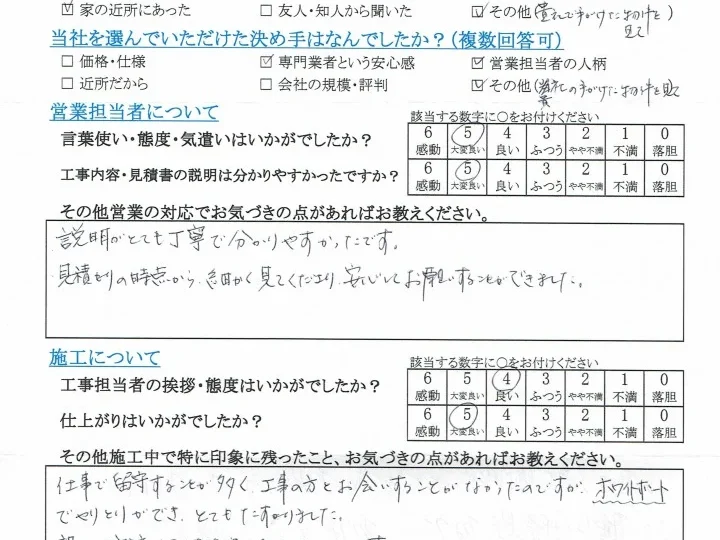 ☑ 家の近所にあった □ 友人・知人から聞いた ☑ その他(貴社で手がけた物件を見て)
当社を選んでいただけた決め手はなんでしたか？(複数回答可)
□ 価格・仕様 ☑ 専門業者という安心感 ☑ 営業担当者の人柄
□ 近所だから □ 会社の規模・評判 ☑ その他(貴社の手がけた物件を見て
営業担当者について 該当する数字に○をお付けください
言葉使い・態度・気遣いはいかがでしたか？ 6 5 4 3 2 1 0
感動 大変良い 良い ふつう やや不満 不満 落胆
工事内容・見積書の説明は分かりやすかったですか？ 6 5 4 3 2 1 0
感動 大変良い 良い ふつう やや不満 不満 落胆
その他営業の対応でお気づきの点があればお教えください。
説明がとても丁寧で分かりやすかったです。
見積もりの時点から、細かく見てくださり、安心してお願いすることができました。
施工について 該当する数字に○をお付けください
工事担当者の挨拶・態度はいかがでしたか？ 6 5 4 3 2 1 0
感動 大変良い 良い ふつう やや不満 不満 落胆
仕上がりはいかがでしたか？ 6 5 4 3 2 1 0
感動 大変良い 良い ふつう やや不満 不満 落胆
その他施工中で特に印象に残ったこと、お気づきの点があればお教えください。
仕事で留守することが多く、工事の方とお会いすることがなかったのですが、ホワイトボード
でやりとりができ、とてもたすかりました。